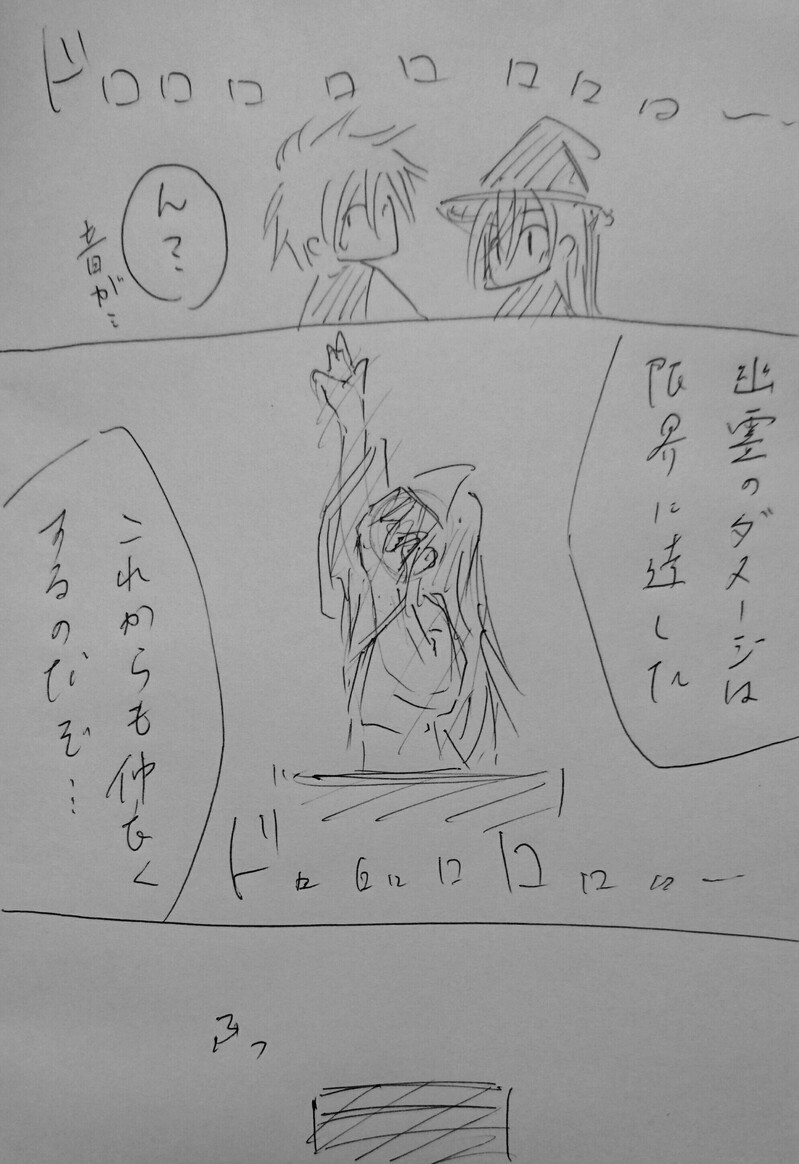 ドロロロロロロロロー
ん？
音が…
幽霊のダメージは
限界に達した
これからも仲良く
するのだぞ…
ドロロロロロロロー
ふっ